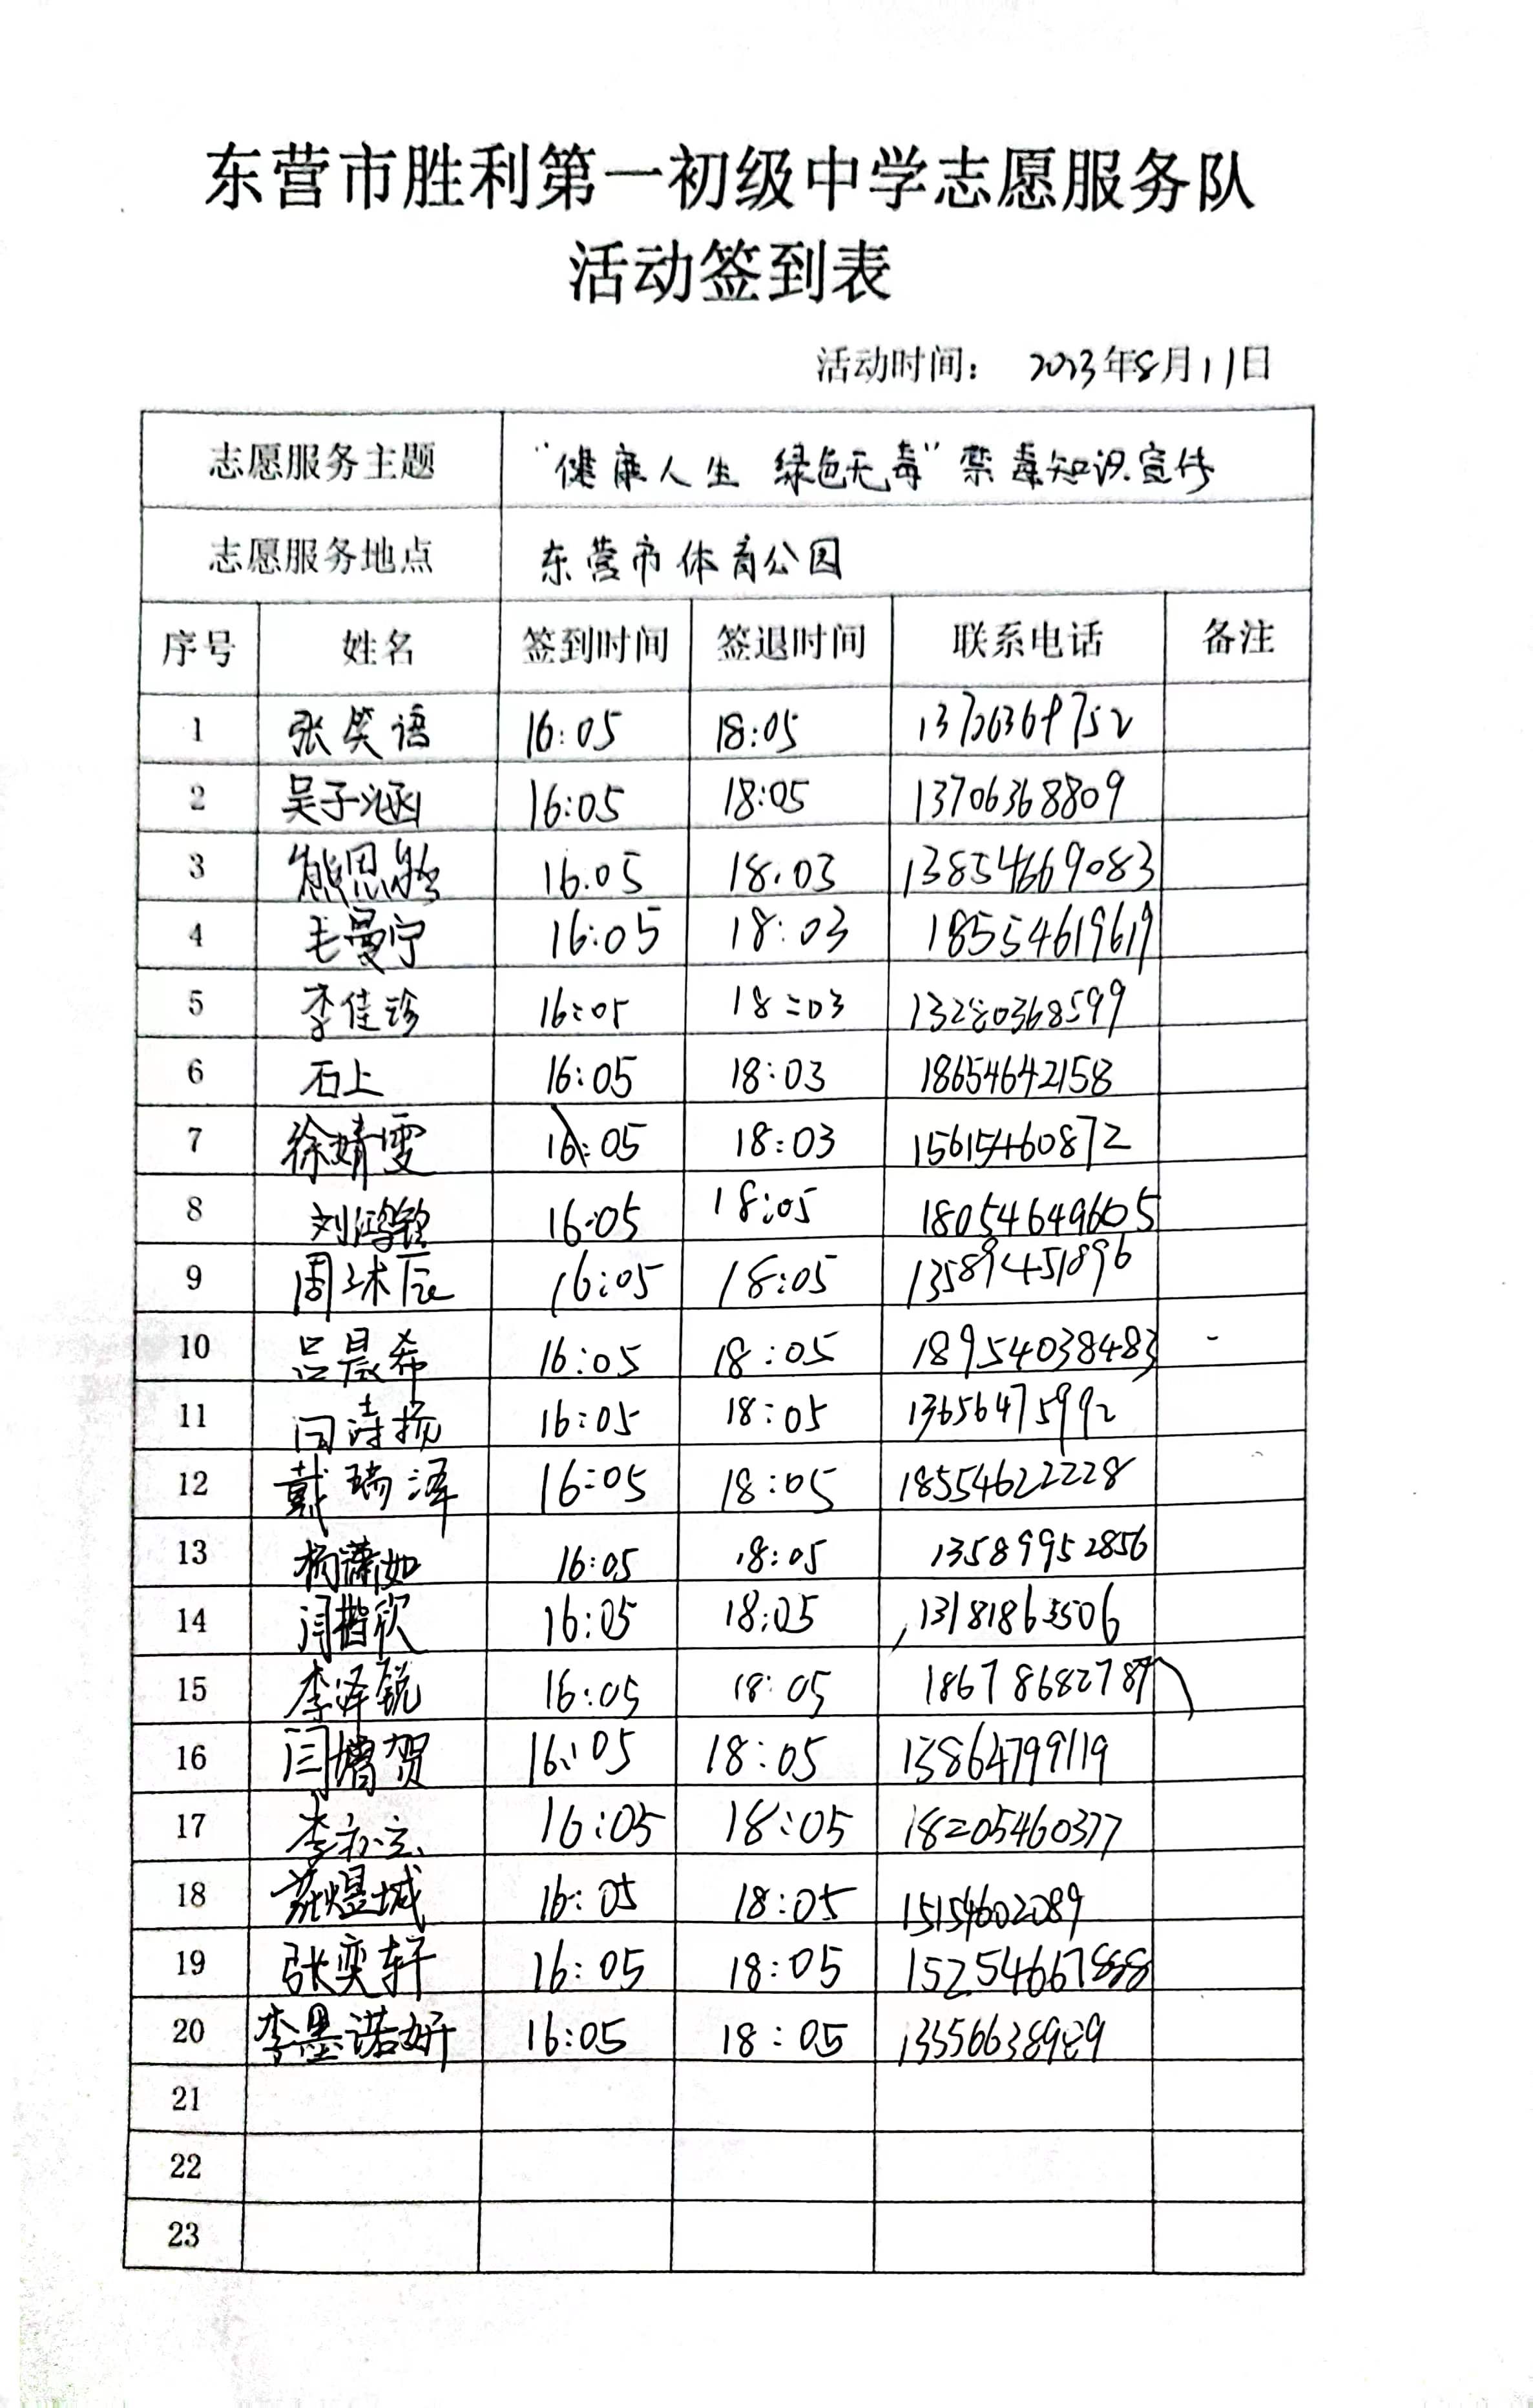 东营市胜利第一初级中学志愿服务队
活动签到表
活动时间： 2023年8月11日
志愿服务主题 “健康人生 绿色无毒”禁毒知识宣传
志愿服务地点 东营市体育公园
序号 姓名 签到时间 签退时间 联系电话 备注
1 张笑语 16:05 18:05
2 吴子涵 16:05 18:05 13706368809
3 熊思 16.05 18.03 13854669083
4 毛曼宁 16:05 18:03 18554619619
5 李佳珍 16:05 18:03 13280368599
6 石上 16:05 18:03 18654642158
7 徐婧雯 16:05 18:03 15615460872
8 刘鸿 16:05 18:05 18054649605
9 周沐辰 16:05 18:05 13589451896
10 吕晨希 16:05 18:05 18954038483 -
11 闫诗扬 16:05 18:05 13656475992
12 戴瑞泽 16:05 18:05 18554622228
13 杨潇如 16:05 18:05 13589952856
14 闫楷欣 16:05 18:05 13181863506
15 李泽锐 16:05 18:05 18678682787
16 闫增贺 16:05 18:05 13864799119
17 李 16:05 18:05 18205460377
18 煜城 16:05 18:05 15154602089
19 张奕轩 16:05 18:05 15254667888
20 李墨诺妍 16:05 18:05 13356638989
21
22
23